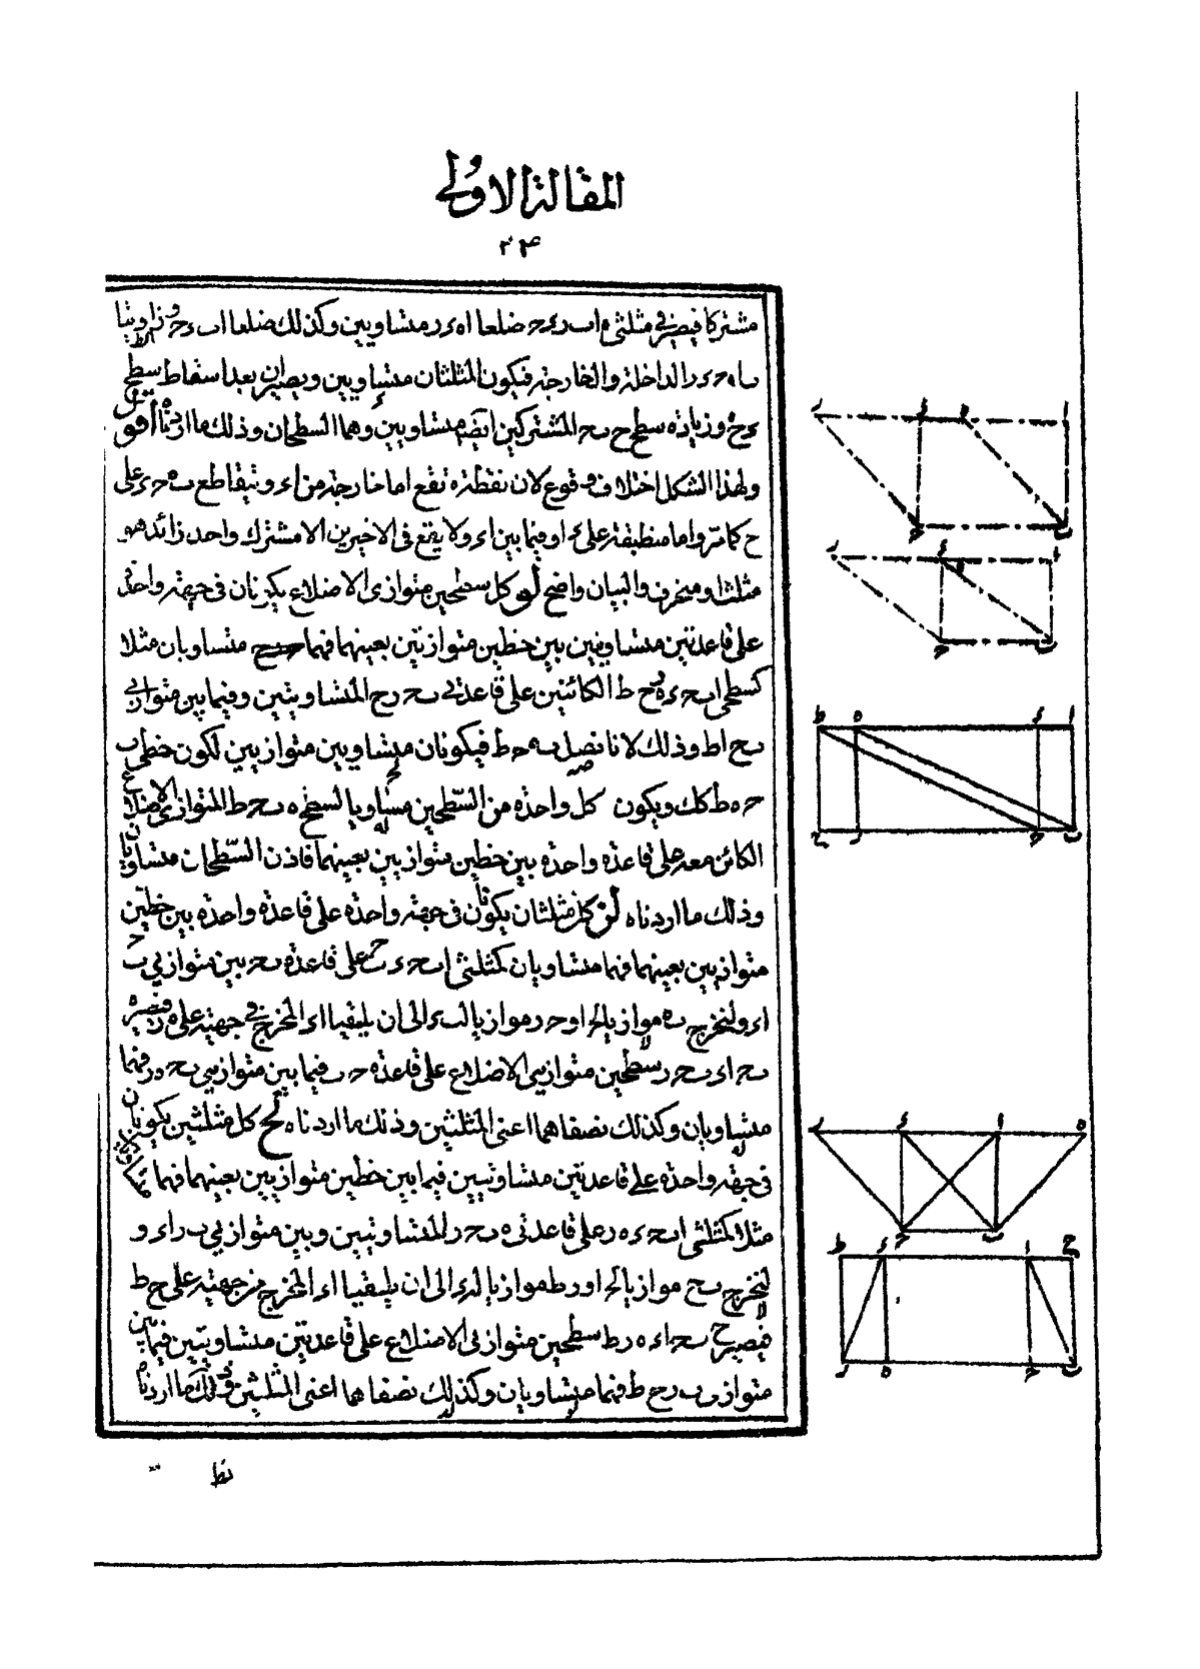 المقالة الاولى
٢٤
مشتركا فيصير في مثلثي ه ا ب ر ء ح ضلعا ا ه ء ر متساويين وكذلك ضلعا ا ب ء ح وزاويتا
ب ا ه ح ء ر الداخلة والخارجة فيكون المثلثان متساويين ويصيران بعد اسقاط سطح
ء ح وزيادة سطح ح ب ح المشتركين ايضا متساويين وهما السطحان وذلك ما اردناه اقول
ولهذا الشكل اختلاف وقوع لان نقطة ه تقع اما خارجة من ا ء ويتقاطع ب ه ح ء على
ح كما مر واما منطبقة على ء او فيما بين ا ء ولا يقع في الاخيرين الا مشترك واحد زائد هو
مثلث او منحرف والبيان واضح لو كل سطحين متوازي الاضلاع يكونان في جهة واحدة
على قاعدتين متساويتين بين خطين متوازيين بعينهما فهما متساويان مثلا
كسطحي ا ب ح ء ه ر ح ط الكائنين على قاعدتي ب ح ر ح المتساويتين وفيما بين متوازيي
ب ح ا ط وذلك لانا نصل ب ه ح ط فيكونان متساويين متوازيين لكون خطي ب
ح ه ط كك ويكون كل واحدة من السطحين مساويا لسطح ه ب ح ط المتوازي الاضلاع
الكائن معه على قاعدة واحدة بين خطين متوازيين بعينهما فاذن السطحان متساويان
وذلك ما اردناه لز كل مثلثان يكونان في جهة واحدة على قاعدة واحدة بين خطين
متوازيين بعينهما فهما متساويان كمثلثي ا ب ح ء ب ح على قاعدة ب ح بين متوازيي ب ح
ا ء ولنخرج ب ه موازيا لح ا و ح ر موازيا لب ء الى ان يلتقيا ا ء المخرج في جهتيه على ه ر فيصير ه
ب ح ا ء ب ح ر سطحين متوازيي الاضلاع على قاعدة ح ب فيما بين متوازيي ب ح ه ر فهما
متساويان وكذلك نصفاهما اعني المثلثين وذلك ما اردناه لح كل مثلثين يكونان
في جهة واحدة على قاعدتين متساويتين فيما بين خطين متوازيين بعينهما فهما متساويان
مثلا كمثلثي ا ب ح ء ه ر على قاعدتي ب ح ه ر المتساويتين وبين متوازيي ب ر ا ء و
لنخرج ب ح موازيا لح ا و ر ط موازيا لء ه الى ان يلتقيا ا ء المخرج من جهتيه على ح ط
فيصير ح ب ح ا ء ه ر ط سطحين متوازيي الاضلاع على قاعدتين متساويتين فيما بين
متوازيي ب ر ح ط فهما متساويان وكذلك نصفاهما اعني المثلثين وذلك ما اردناه
ر ء ه ا
ح ب
ر ء ا
ه
ح ب
ط ه ء ا
ح ر ح ب
ر ء ا ه
ح ب
ط ء ا ح
ر ه ح ب